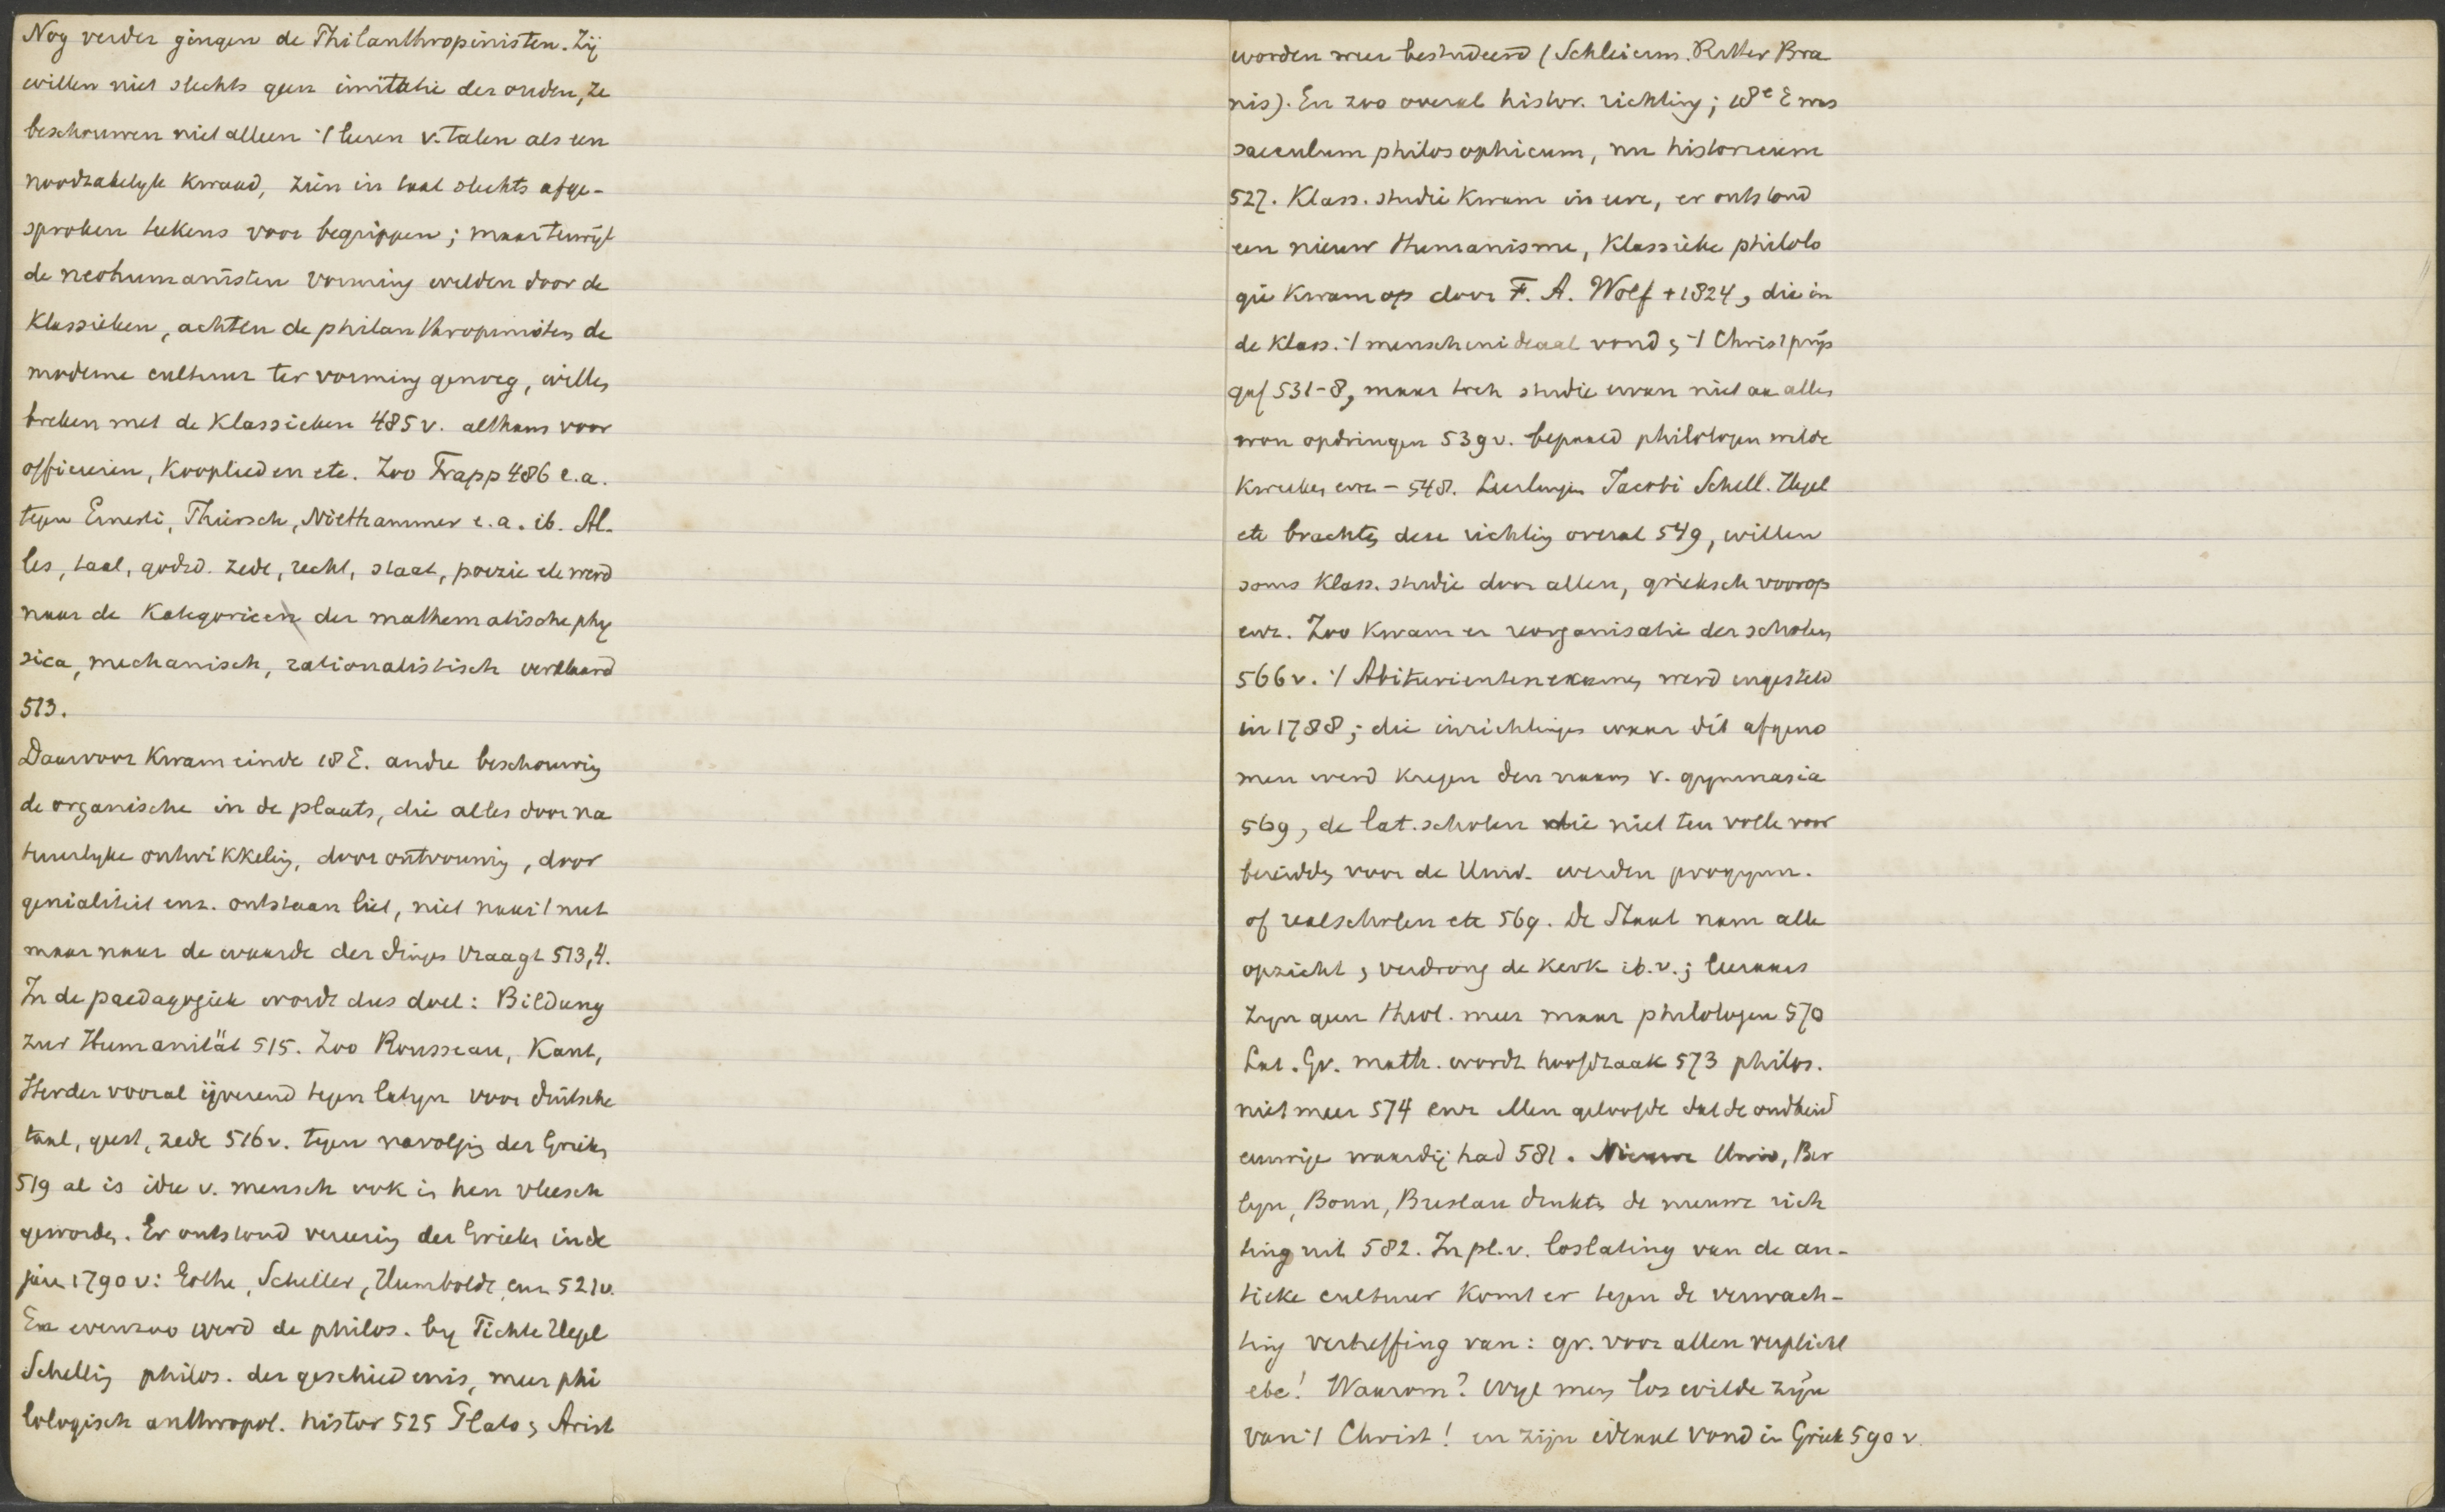 Nog verder gingen de Philanthropinisten. Zij
willen niet slechts geen imitatie der ouden, ze
beschouwen niet alleen 't leeren v. talen als een
noodzakelyk kwaad, zien in taal slechts afge-
sproken teekens voor begrippen; maar terwijl
de neohumanisten vorming wilden door de
Klassieken, achten de philanthropinisten de
moderne cultuur ter vorming genoeg, willen
breken met de Klassieken 485 v. althans voor
officieren, Kooplieden etc. Zoo Trapp 486 e.a.
tegen Ernesti, Thiersch, Niethammer e.a. ib. Al-
les, taal, godsd. zede, recht, staat, poezie etc werd
naar de Kategorieen der mathematische phy
sica, mechanisch, rationalistisch verklaard
513.
Daarvoor Kwam einde 18 E. andre beschouwing
de organische in de plaats, die alles door na
tuurlyke ontwikkeling, door ontvouwing, door
genialiteit enz. ontstaan liet, niet naar 't nut
maar naar de waarde der dingen vraagt 513, 4.
In de paedagogiek wordt dus doel: Bildung
zur Humanität 515. Zoo Rousseau, Kant,
Herder vooral ijverend tegen latyn voor duitsche
taal, geest, zede 516 v. tegen navolging der Grieken
519 al is idee v. mensch ook in hen vleesch
geworden. Er ontstond vereering der Grieken in de
jaren 1790 v: Göthe, Schiller, Humboldt, enz 521 v.
En evenzoo werd de philos. by Fichte Hegel
Schelling philos. der geschiedenis, meer phi
lologisch anthropol. histor 525 Plato, Arist
worden weer bestudeerd (Schleierm. Ritter Bra
nis). En zoo overal histor. richting; 18e E was
saeculum philosophicum, nu historicum
527. Klass. studie Kwam in eere, er ontstond
een nieuw Humanisme, Klassieke philolo
gie Kwam op door F. A. Wolf + 1824, die in
de Klass. 't menschenideaal vond, 't Christ prijs
gaf 531-8, maar toch studie ervan niet aan allen
won opdringen 539 v. bepaald philologen wilde
Kweeken enz - 548. Leerlingen Jacobi Schell. Hegel
etc brachten deze richting overal 549, willen
soms Klass. studie door allen, grieksch voorop
enz. Zoo Kwam er reorganisatie der scholen
566 v. 't Abiturientenexamen werd ingesteld
in 1788; die inrichtingen waar dit afgeno
men werd kregen den naam v. gymnasia
569, de lat. scholen die niet ten volle voor
bereidden voor de Univ. werden progymn.
of realscholen etc 569. De Staat nam alle
opzicht, verdrong de Kerk ib. v.; leeraars
zyn geen theol. meer maar philologen 570
Lat. Gr. math. wordt hoofdzaak 573 philos.
niet meer 574 enz Men geloofde dat de oudheid
eeuwige waardij had 581. Nieuwe Univ, Ber
lyn, Bonn, Breslau drukten de nieuwe rich
ting uit 582. In pl. v. loslating van de an-
tieke cultuur Komt er tegen de verwach-
ting verheffing van: gr. voor allen verplicht
etc! Waarom? Wyl men los wilde zijn
van 't Christ! en zijn ideaal vond in Griek 590 v.